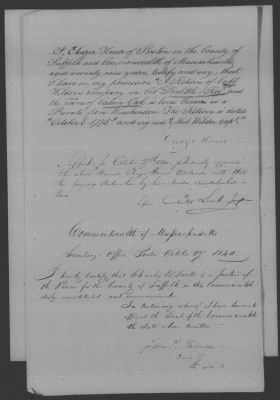 I Eleazer Homer of Boston in the County of
Suffolk and Commonwealth of Massachusetts,
aged seventy nine years, testify and say, that
I have in my possession A Return of Capt
Wilders Company in Col Doolittle Reg and
the name of Calvin Oak is borne thereon as a
Private from Winchendon. The Return is dated
"October 6 1775" and signed "Abel Wilder Capt."
Eleazer Homer
Suffolk ss October personally appeared
the above named Eleazer Homer and made oath that
the foregoing declaration by him subscribed is
true
Before
Commonwealth of Massachusetts
Secretary's Office Boston October 27 1840.
I hereby certify that is a Justice of
the Peace for the County of Suffolk in the Commonwealth
duly constituted and commissioned.
In testimony whereof I have hereunto
affixed the Seal of the Commonwealth
the date above written